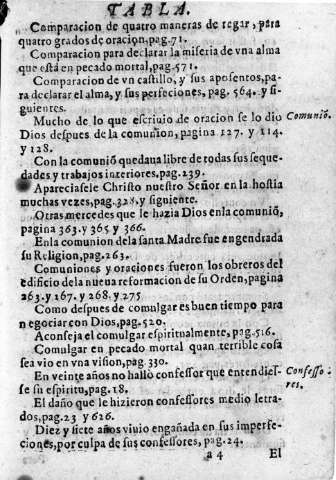 TABLA.
Comparacion de quatro maneras de regar, para
quatro grados de oracion, pag.71.
Comparacion para declarar la miseria de vna alma
que està en pecado mortal, pag.571.
Comparacion de vn castillo, y sus aposentos, pa-
ra declarar el alma, y sus perfeciones, pag. 564. y si-
guientes.
Mucho de lo que escriuio de oracion se lo dio
Comunió.
Dios despues de la comunion, pagina 127. y 114.
y 128.
Con la comunió quedaua libre de todas sus seque-
dades y trabajos interiores, pag.239.
Apareciasele Christo nuestro Señor en la hostia
muchas vezes, pag.328, y siguiente.
Otras mercedes que le hazia Dios enla comunió,
pagina 363. y 365 y 366.
Enla comunion dela santa Madre fue engendrada
su Religion, pag.263.
Comuniones y oraciones fueron los obreros del
edificio dela nueua reformacion de su Orden, pagina
263. y 167. y 268. y 275
Como despues de comulgar es buen tiempo para
negociar con Dios, pag.520.
Aconseja el comulgar espiritualmente, pag.516.
Comulgar en pecado mortal quan terrible cosa
sea vio en vna vision, pag. 330.
En veinte años no hallo confessor que entendies-
Confesso
se su espiritu, pag.18.
res.
El daño que le hizieron confessores medio letra-
dos, pag.23 y 626.
Diez y siete años viuio engañada en sus imperfe-
ciones, por culpa de sus confessores, pag.24.
a 4 El